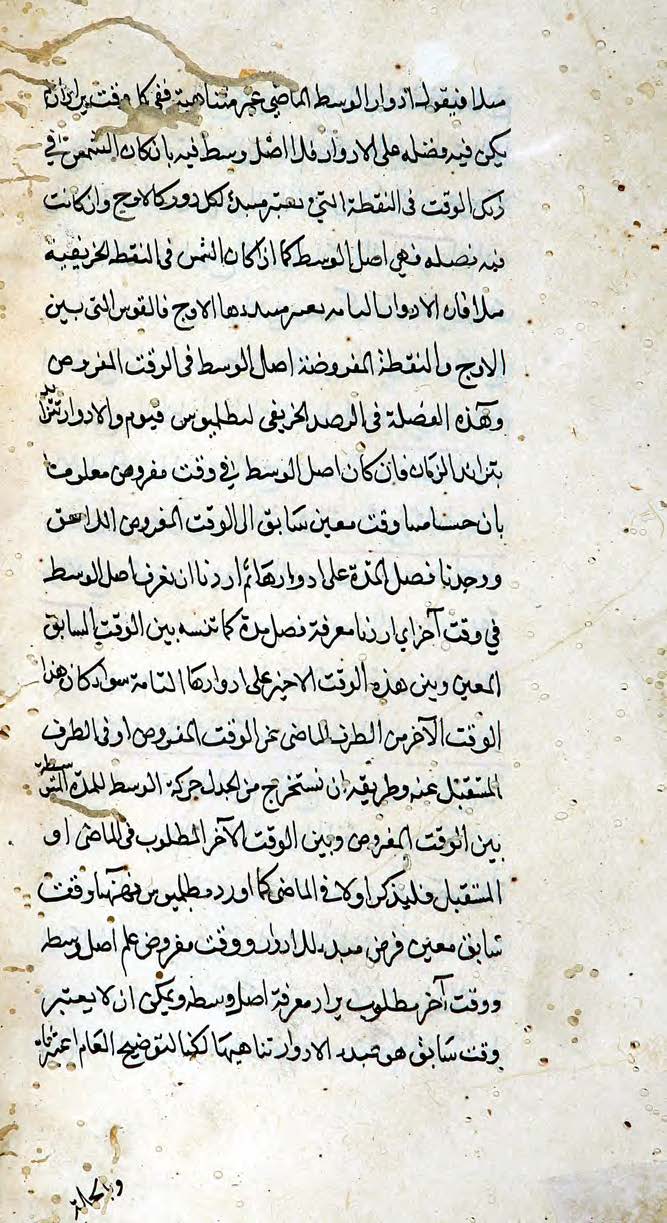 مبدا فنيقول ادوار الوسط الماضي غير متناهية ففي كل وقت يراد ان لم
يكن فيه فضله على الادوار فلا اصل وسط فيه بان كان الشمس في
ذلك الوقت في النقطة التي تعتبر مبدأ لكل دور كالاوج وان كانت
فيه فضله فهي اصل الوسط كما اذ كان الشمس في النقطة الخريفية
مثلا فان الادوار التامه يعتبر مبدءها الاوج فالقوس التي بين
الاوج والنقطة المفروضة اصل الوسط في الوقت المفروض
وهذه الفضلة في الرصد الخريفي لبطليوس والادوار تتزايد
بتزايد الزمان فان كان اصل الوسط في وقت مفروض معلوما
بان حسابنا وقت معين سابق الى الوقت المفروض اللاحق
ووجدنا فصل المدة على ادوارها ثم اردنا ان نعرف اصل الوسط
في وقت آخر اي اردنا معرفة فصل مدة كائنسه بين الوقت السابق
المعين وبين هذه الوقت الاخير على ادوارها التامة سواء كان هذا
الوقت الآخر من الطرف الماضي عن الوقت المفروض او في الطرف
المستقبل عنه وطريقه ان نستخرج من الجدل حركة الوسط للمدة المتوسطة
بين الوقت المفروض وبين الوقت الآخر المطلوب في الماضي او
المستقبل فليذكر اولا في الماضي كما اورد بطليوس فههنا وقت
سابق معين فرض مبدء للادوار ووقت مفروض علم اصل وسطه
ووقت آخر مطلوب يراد معرفة اصل وسطه ويمكن ان لا يعتبر
وقت سابق هو مبدء الادوار تناهيها لكنا لتوضيح العام اعتبرناه
وبالجملة